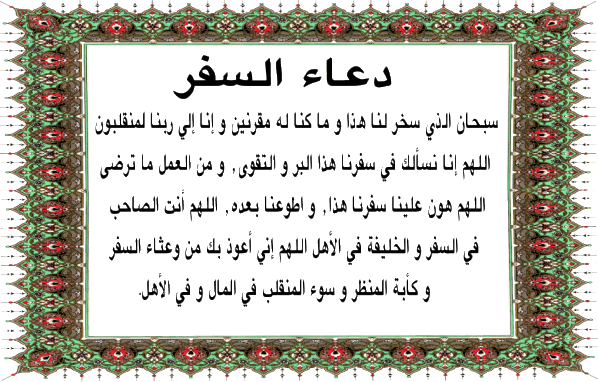 دعاء السفر
سبحان الذي سخر لنا هذا و ما كنا له مقرنين و إنا إلي ربنا لمنقلبون
اللهم إنا نسألك في سفرنا هذا البر و التقوى, و من العمل ما ترضى
اللهم هون علينا سفرنا هذا, و اطوعنا بعده, اللهم أنت الصاحب
في السفر و الخليفة في الأهل اللهم إني أعوذ بك من وعثاء السفر
و كأبة المنظر و سوء المنقلب في المال و في الأهل.